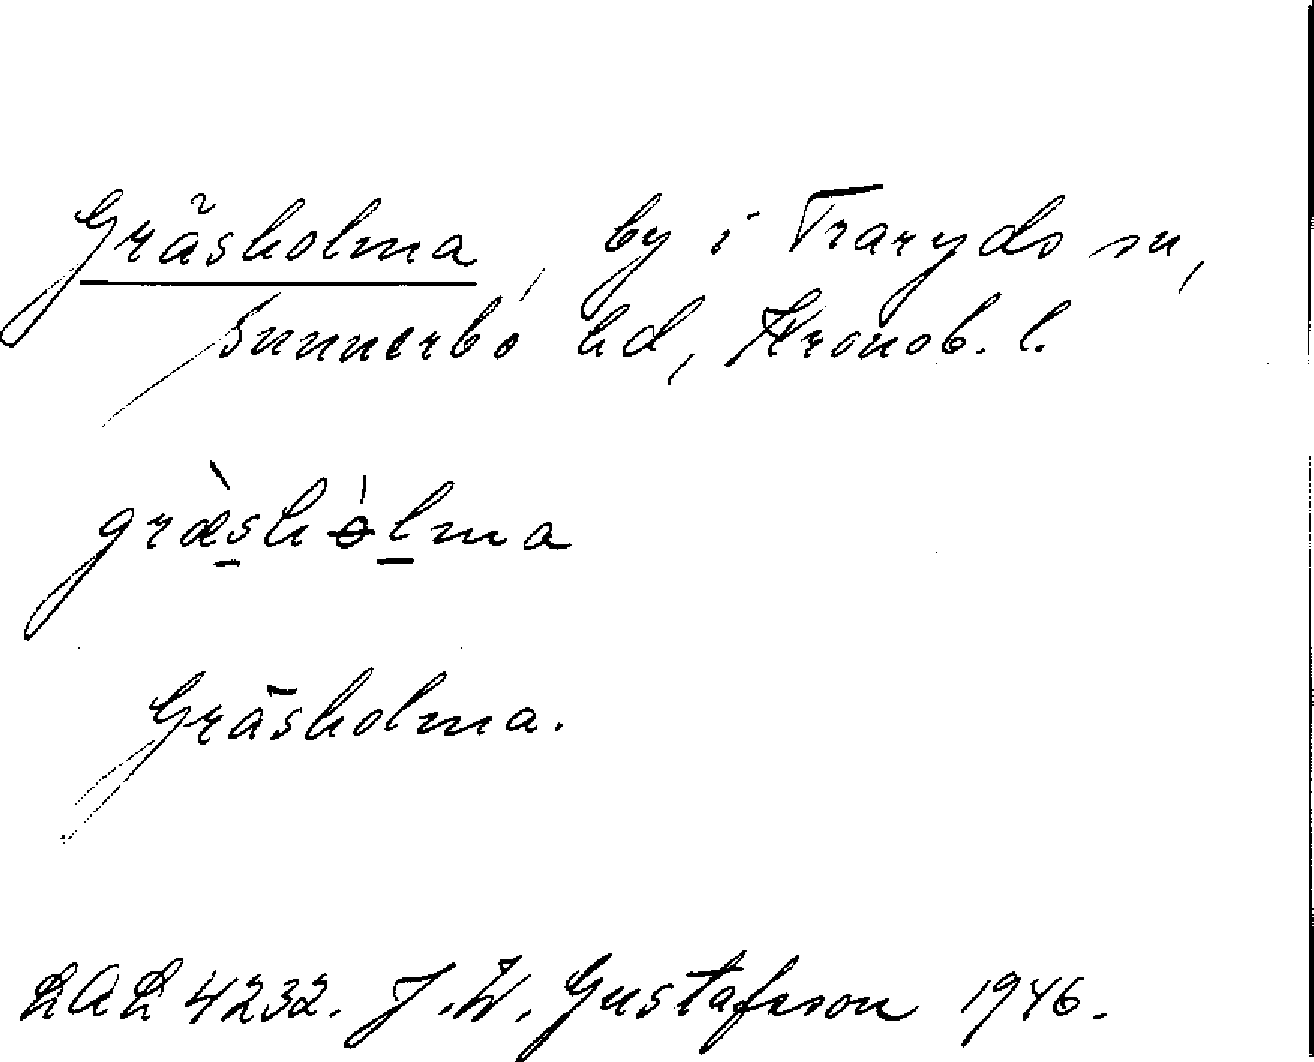 Gräsholma, by i Traryds sn,
Sunnerbo hd, Kronob. l.
græ̀shɵ̀lma
Gräsholma.
LAL 4232. J.W. Gustafsson 1946.